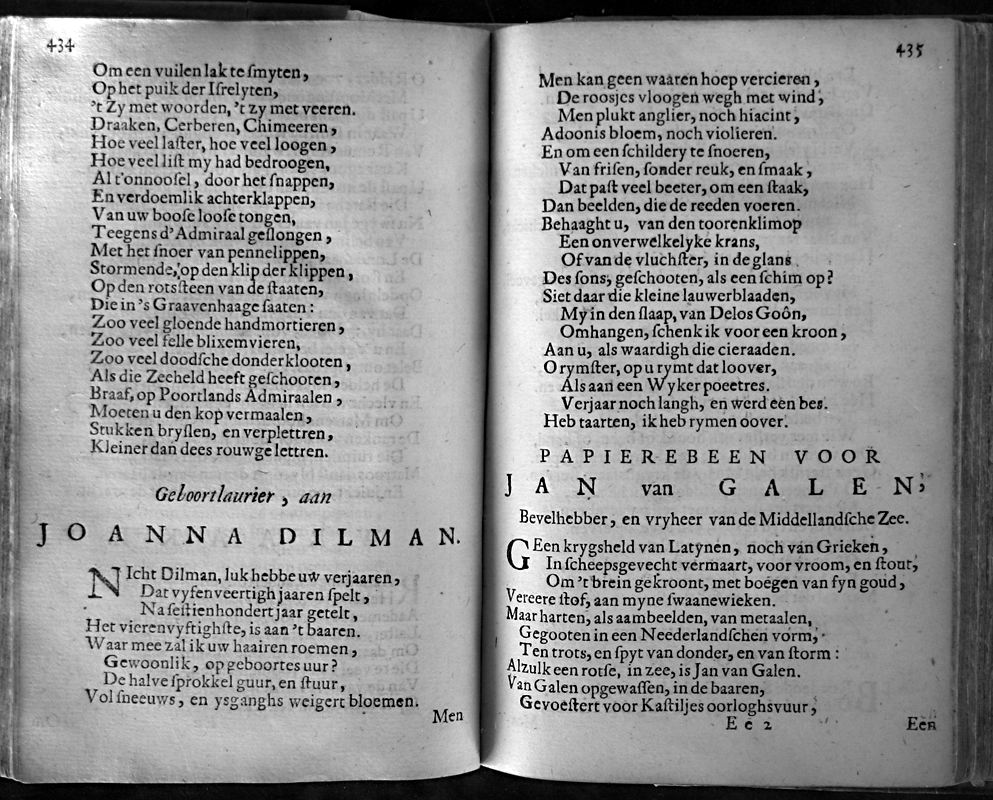 434
Om een vuilen lak te ſmyten,
Op het puik der Iſrelyten,
't Zy met woorden, 't zy met veeren.
Draaken, Cerberen, Chimeeren,
Hoe veel laſter, hoe veel loogen,
Hoe veel liſt my had bedroogen,
Al t'onnooſel, door het ſnappen,
En verdoemlik achterklappen,
Van uw booſe looſe tongen,
Teegens d'Admiraal geſlongen,
Met het ſnoer van pennelippen,
Stormende, op den klip der klippen,
Op den rotsſteen van de ſtaaten,
Die in 's Graavenhaage ſaaten:
Zoo veel gloende handmortieren,
Zoo veel felle blixemvieren,
Zoo veel doodſche donderklooten,
Als die Zeeheld heeft geſchooten,
Braaf, op Poortlands Admiraalen,
Moeten u den kop vermaalen,
Stukken bryſlen, en verplettren,
Kleiner dan dees rouwge lettren.
Geboortlaurier, aan
JOANNA DILMAN.
NIcht Dilman, luk hebbe uw verjaaren,
Dat vyfenveertigh jaaren ſpelt,
Na ſeſtienhondert jaar getelt,
Het vierenvyftighſte, is aan 't baaren.
Waar mee zal ik uw haairen roemen,
Gewoonlik, op geboortes uur?
De halve ſprokkel guur, en ſtuur,
Vol ſneeuws, en ysganghs weigert bloemen.
Men
435
Men kan geen waaren hoep vercieren,
De roosjes vloogen wegh met wind,
Men plukt anglier, noch hiacint,
Adoonis bloem, noch violieren.
En om een ſchildery te ſnoeren,
Van friſen, ſonder reuk, en ſmaak,
Dat paſt veel beeter, om een ſtaak,
Dan beelden, die de reeden voeren.
Behaaght u, van den toorenklimop
Een onverwelkelyke krans,
Of van de vluchſter, in de glans
Des ſons, geſchooten, als een ſchim op?
Siet daar die kleine lauwerblaaden,
My in den ſlaap, van Delos Goôn,
Omhangen, ſchenk ik voor een kroon,
Aan u, als waardigh die cieraaden.
O rymſter, op u rymt dat loover,
Als aan een Wyker poeetres.
Verjaar noch langh, en werd een bes.
Heb taarten, ik heb rymen oover.
PAPIEREBEEN VOOR
JAN van GALEN,
Bevelhebber, en vryheer van de Middellandſche Zee.
GEen krygsheld van Latynen, noch van Grieken,
In ſcheepsgevecht vermaart, voor vroom, en ſtout,
Om 't brein gekroont, met boegen van fyn goud,
Vereere ſtof, aan myne ſwaanewieken.
Maar harten, als aambeelden, van metaalen,
Gegooten in een Neederlandſchen vorm,
Ten trots, en ſpyt van donder, en van ſtorm:
Alzulk een rotſe, in zee, is Jan van Galen.
Van Galen opgewaſſen, in de baaren,
Gevoeſtert voor Kaſtiljes oorloghsvuur,
Ee 2
Een